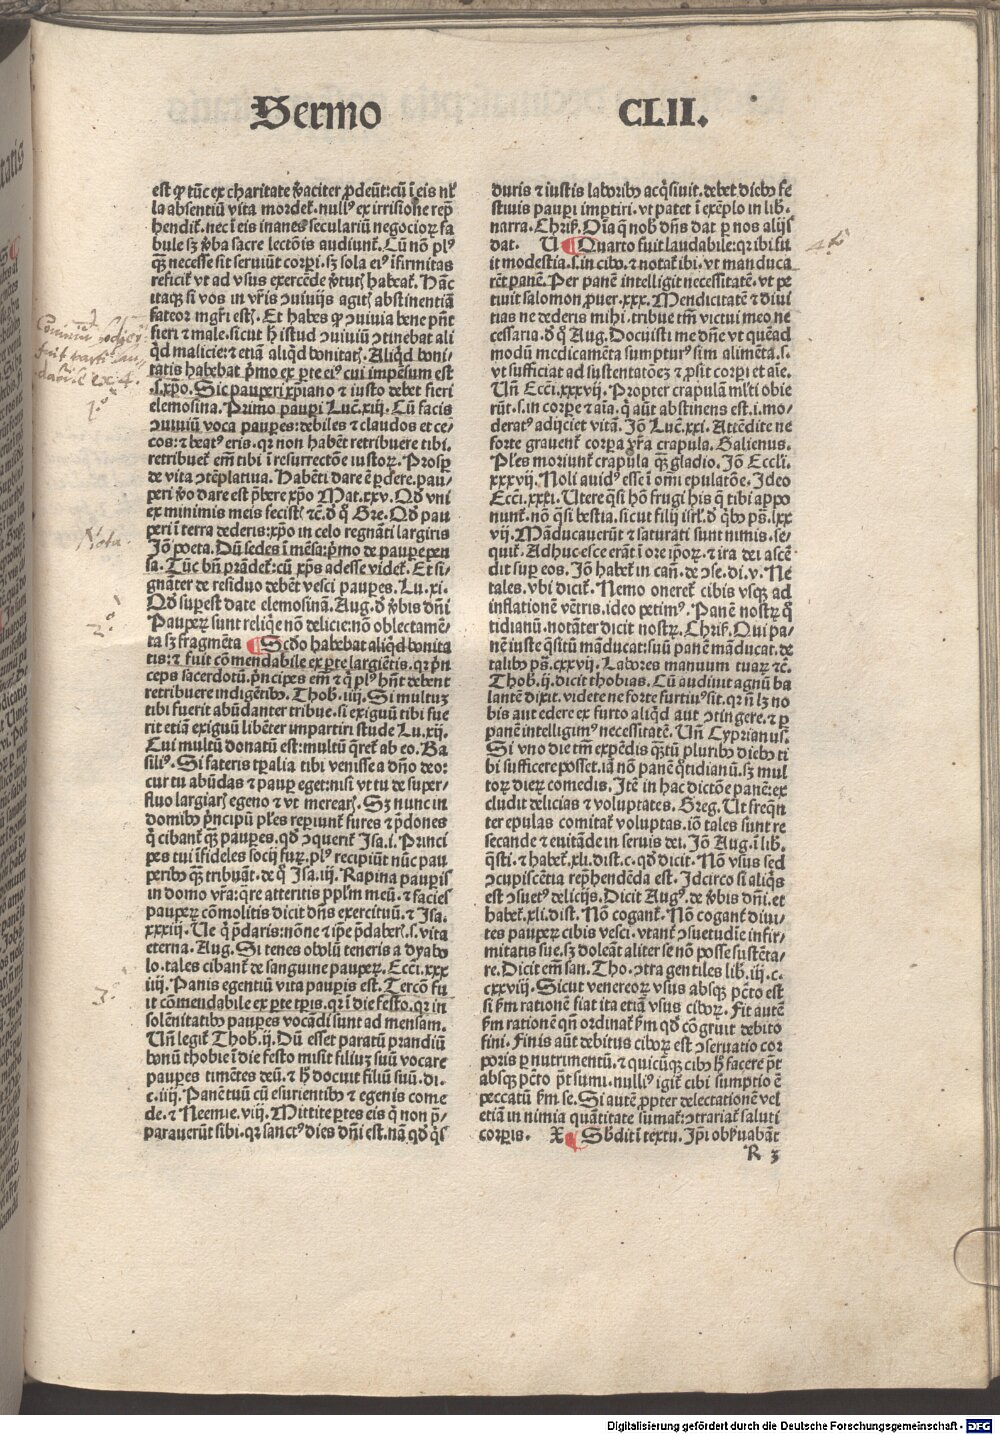 Sermo CLII.
est qͥ tūc ex charitate v̄aciter ꝓdeūt: cū ī eis nl̕
la absentiū vita mordet̕. nullꝰ ex irrisione rep̄
hendit̕. nec ī eis inanes seculariū negocioꝝ fa
bule sꝫ v̄ba sacre lectōis audiunt̕. Cū nō plꝰ
qꝫ̄ necesse sit seruiūt corpi. sꝫ sola eiꝰ īfirmitas
reficit̕ vt ad vsus exercēde v̄tutꝭ habeat̕. Hāc
itaqꝫ si vos in vr̄is ꝯuiuijs agitꝭ abstinentiā
fateor mgr̄i estꝭ. Et habes qͥ ꝯuiuia bene pn̄t
fieri ⁊ male. sicut h̄ istud ꝯuiuiū ꝯtinebat ali
qͥd malicie: ⁊ etiā aliqͥd bonitatꝭ. Aliqͥd boni-
tatis habebat pͥmo ex ꝑte eiꝰ cui impēsum est
.s. xp̄o. Sic pauperi xp̄iano ⁊ iusto debet fieri
elemosina. Primo paupi Luc̄. xiij. Cū facis
ꝯuiuiū voca paupes: debiles ⁊ claudos et ce-
cos: ⁊ beatꝰ eris. qꝛ non habēt retribuere tibi.
retribuet̕ em̄ tibi ī resurrectōe iustoꝝ. Prosꝑ
de vita ꝯtēplatiua. Habēti dare ē ꝑdere. pau-
peri v̄o dare est p̄bere xp̄o Mat. xxv. Qd̄ vni
ex minimis meis fecistꝭ ⁊c̄. d̄ qͦ Gre. Qd̄ pau
peri ī terra dederis: xp̄o in celo regnāti largiris
Jō poeta. Dū sedes ī mēsa: pͥmo de paupe pen
sa. Tūc bn̄ prādet̕: cū xp̄s adesse videt̕. Et si-
gnāter de residuo debēt vesci paupes. Lu. xi.
Qd̄ supest date elemosinā. Aug. d̄ v̄bis dn̄i
Pauperꝝ sunt reliqͥe nō delicie: nō oblectamē-
ta sꝫ fragmēta ¶ Scd̄o habebat aliqͥd bonita
tis: ⁊ fuit cōmendabile ex ꝑte largiētis. qꝛ pn̄
ceps sacerdotū. pͥncipes em̄ ⁊ qͥ plꝰ hn̄t debent
retribuere indigētibꝰ. Thob. iiij. Si multuꝫ
tibi fuerit abūdanter tribue. si exiguū tibi fue
rit etiā exiguū libēter impartiri stude Lu. xij.
Cui multū donatū est: multū qͥret̕ ab eo. Ba
siliꝰ. Si fateris tꝑalia tibi venisse a dn̄o deo:
cur tu abūdas ⁊ paup eget: nisi vt tu de super-
fluo largiarꝭ egeno ⁊ vt merearꝭ. Sꝫ nunc in
domibꝰ pͥncipū pl̄es repiunt̕ fures ⁊ p̄dones
qͥ cibant̕ qꝫ̄ paupes. qd̄ ꝯquerit̕ Isa. i. Princi
pes tui īfideles socij furꝝ. plꝰ recipiūt nūc pau
peribꝰ qꝫ̄ tribuāt. de qͥ Isa. iij. Rapina paupis
in domo vr̄a: qͣre atteritis ppl̄m meū. ⁊ facies
pauperꝝ cōmolitis dicit dn̄s exercituū. ⁊ Isa.
xxxiij. Ue qͥ p̄daris: nōne ⁊ ip̄e p̄daberꝭ. s. vita
eterna. Aug. Si tenes obolū teneris a dyabo
lo. tales cibant̕ de sanguine pauperꝝ. Ecci. xxx
iiij. Panis egentiū vita paupis est. Tercō fu
it cōmendabile ex ꝑte tp̄is. qꝛ ī die festo. qꝛ in
solēnitatibꝰ paupes vocādi sunt ad mensam.
Un̄ legit̕ Thob. ij. Dū esset paratū prandiū
bonū thobie ī die festo misit filiuꝫ suū vocare
paupes timētes deū. ⁊ h̄ docuit filiū suū. di-
c. iiij. Panē tuū cū esurientibꝰ ⁊ egenis come
de. ⁊ Neemie. viij. Mittite ꝑtes eis qͥ non p̄-
parauerūt sibi. qꝛ sanctꝰ dies dn̄i est. nā qd̄ qͥs
duris ⁊ iustis laboribꝰ acqͥsiuit. debet diebꝰ fe
stiuis paupi imꝑtiri. vt patet ī exēplo in lib.
narra. Chriſ. Oīa q̄ nob̄ dn̄s dat ꝑ nos alijs
dat. U ¶ Quarto fuit laudabile: qꝛ ibi fu
it modestia. s. in cibo. ⁊ notat̕ ibi. vt manduca
rēt panē. Per panē intelligit̕ necessitatē. vt pe
tiuit salomon ꝓuer. xxx. Mendicitatē ⁊ diui
tias ne dederis mihi. tribue tm̄ victui meo ne
cessaria. d̄ qͦ Aug. Docuisti me dn̄e vt quēad
modū medicamēta sumpturꝰ sim alimēta. s.
vt sufficiat ad sustentatōeꝫ ⁊ ꝓsit corpi et aīe.
Un̄ Ecci. xxxvij. Propter crapulā ml̕ti obie
rūt. s. in corpe ⁊ aīa. qͥ aūt abstinens est. i. mo-
deratꝰ adijciet vitā. Jō Luc̄. xxi. Attēdite ne
forte grauent̕ corpa vr̄a crapula. Galienus.
Pl̄es moriunt̕ crapula qꝫ̄ gladio. Jō Eccli.
xxxvij. Noli auidꝰ esse ī omi epulatōe. Ideo
Ecci. xxxi. Utere qͣsi hō frugi his q̄ tibi appo
nunt̕. nō qͣsi bestia. sicut filij isrl̕. d̄ qͥbꝰ ps̄. lxx
vij. Māducauerūt ⁊ saturati sunt nimis. se-
quit̕. Adhuc esce erāt ī ore ip̄oꝝ. ⁊ ira dei ascē
dit sup eos. Jō habet̕ in can̄. de ꝯse. di. v. Ne
tales. vbi dicit̕. Nemo oneret̕ cibis vsqꝫ ad
inflationē vētris. ideo petimꝰ. Panē nostrꝫ qͦ
tidianū. notāter dicit nostrꝫ. Chriſ. Qui pa-
nē iuste qͣsitū māducat: suū panē māducat. de
talibꝰ ps̄. cxxvij. Labores manuum tuarꝫ ⁊c̄.
Thob. ij. dicit thobias. Cū audiuit agnū ba
lantē dixit. videte ne forte furtiuꝰ sit. qꝛ n̄ lꝫ no
bis aut edere ex furto aliqͥd aut ꝯtingere. ⁊ ꝑ
panē intelligimꝰ necessitatē. Un̄ Cyprianus.
Si vno die tm̄ expēdis qꝫ̄tū pluribꝰ diebꝰ ti
bi sufficere posset. iā nō panē qͦtidianū. sꝫ mul
torꝫ dierꝫ comedis. Itē in hac dictōe panē: ex
cludit delicias ⁊ voluptates. Greg. Ut freqn̄
ter epulas comitat̕ voluptas. iō tales sunt re
secande ⁊ euitāde in seruis dei. Jō Aug. ī lib.
qͣsti. ⁊ habet̕. xli. dist. c. qd̄ dicit. Nō vsus sed
ꝯcupiscētia rep̄hendēda est. Idcirco si aliqͥs
est ꝯsuetꝰ delicijs. Dicit Augꝰ. de v̄bis dn̄i. et
habet̕. xli. dist. Nō cogant̕. Nō cogant̕ diui-
tes pauperꝫ cibis vesci. vtant̕ ꝯsuetudīe infir-
mitatis sue. sꝫ doleāt aliter se nō posse sustēta-
re. Dicit em̄ san. Tho. ꝯtra gentiles lib̄. iij. c.
cxxviij. Sicut venereoꝝ vsus absqꝫ pct̄o est
si ẜm rationē fiat ita etiā vsus cibꝝ. Fit autē
ẜm rationē qn̄ ordinat̕ ẜm qd̄ cōgruit debito
fini. Finis aūt debitus ciborꝫ est ꝯseruatio cor
poris ꝑ nutrimentū. ⁊ quicūqꝫ cibꝰ h̄ facere pt̄
absqꝫ pct̄o pt̄ sumi. nulliꝰ igit̕ cibi sumptio ē
peccatū ẜm se. Si autē ꝓpter delectationē vel
etiā in nimia quātitate sumat̕: ꝯtrariat̕ saluti
corpis. X ¶ Sb̄dit̕ ī textu. Ip̄i obẜuabāt
R 3
Nota.
1.º
2.º
3.º
4.tō
Digitalisierung gefördert durch die Deutsche Forschungsgemeinschaft - DFG